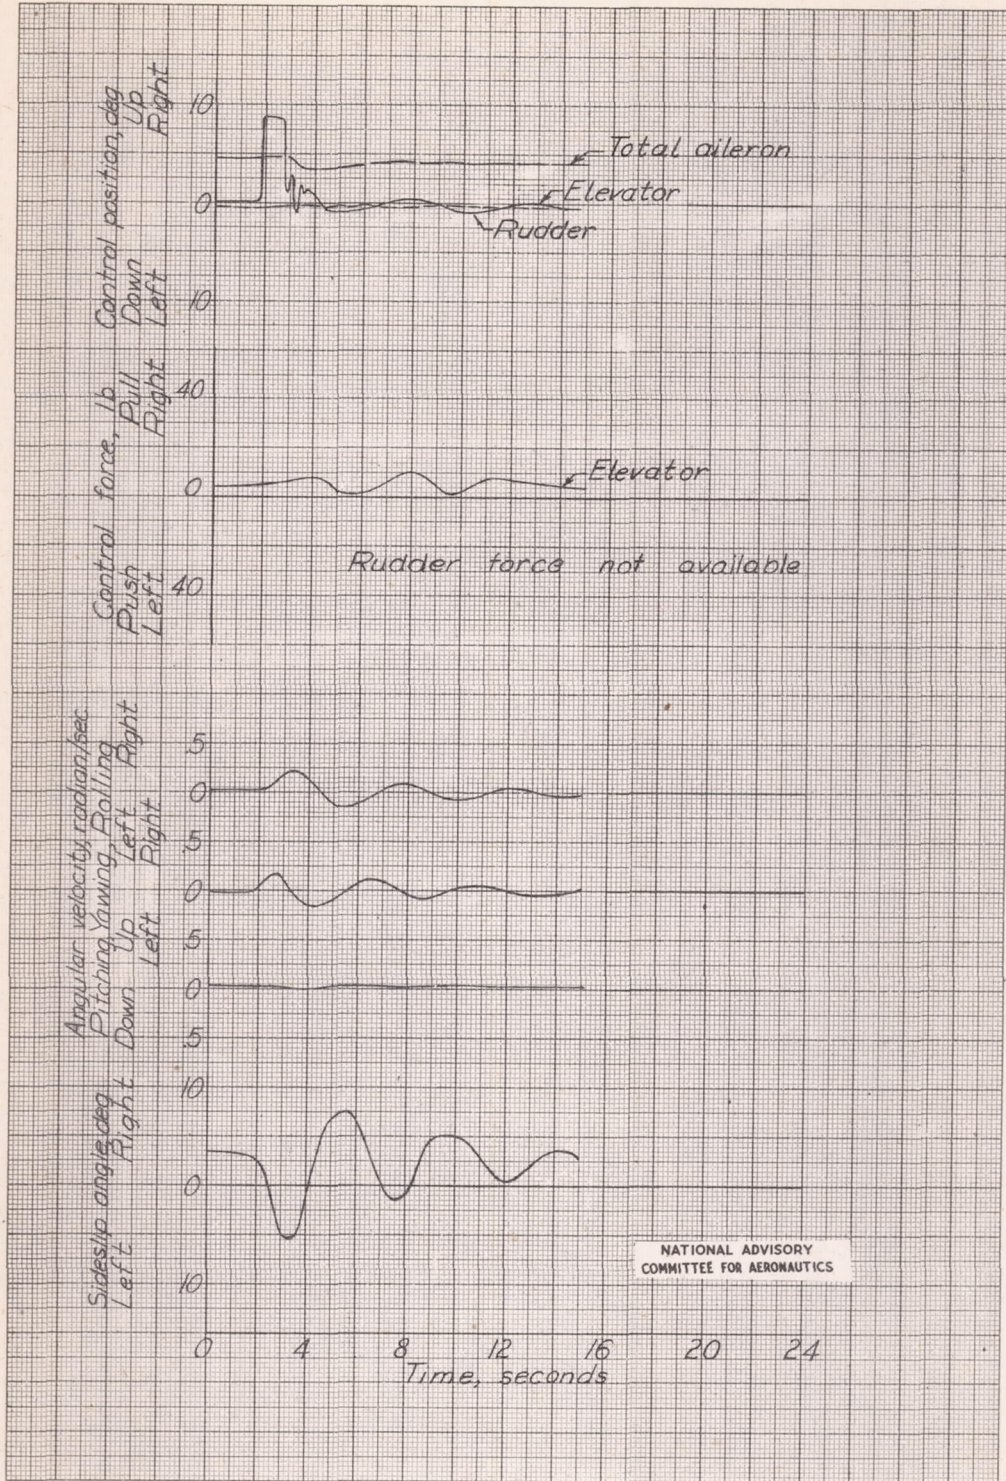 Control position, deg
Down Up
Left Right
10
0
10
Total aileron
Elevator
Rudder
Control force, lb
Push Pull
Left Right
40
0
40
Elevator
Rudder force not available
Angular velocity, radian/sec
Pitching, Yawing, Rolling
Down Up Left Right
Left Right
.5
0
.5
0
.5
0
.5
Sideslip angle, deg
Left Right
10
0
10
NATIONAL ADVISORY
COMMITTEE FOR AERONAUTICS
0 4 8 12 16 20 24
Time, seconds